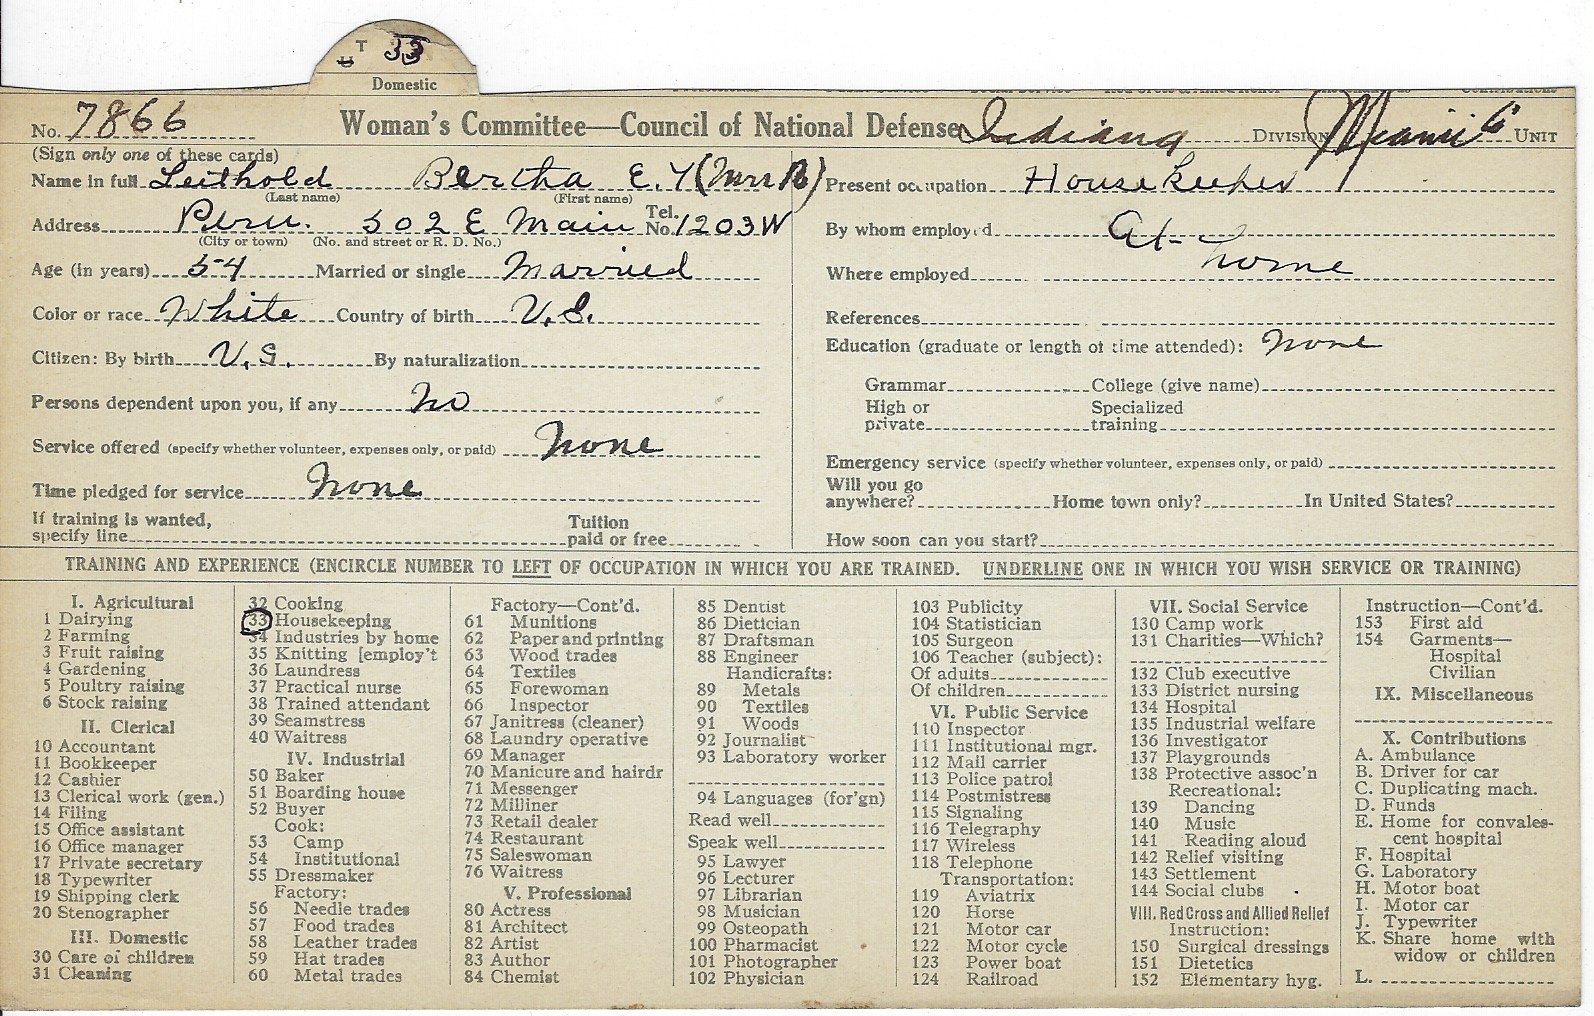 T
U 33
Domestic
No. 7866 Woman's Committee—Council of National Defense Indiana Division Miami Co Unit
(Sign only one of these cards)
Name in full Leithold Bertha E. Y (Mrs B)
(Last name) (First name)
Address Peru. 502 E Main Tel. No. 1203W
(City or town) (No. and street or R. D. No.)
Age (in years) 54 Married or single Married
Color or race White Country of birth U.S.
Citizen: By birth U.S. By naturalization
Persons dependent upon you, if any No
Service offered (specify whether volunteer, expenses only, or paid) None
Time pledged for service None
If training is wanted,
specify line Tuition paid or free
Present occupation Housekeeper
By whom employed At-
Where employed home
References
Education (graduate or length of time attended): None
Grammar College (give name)
High or private Specialized training
Emergency service (specify whether volunteer, expenses only, or paid)
Will you go
anywhere? Home town only? In United States?
How soon can you start?
TRAINING AND EXPERIENCE (ENCIRCLE NUMBER TO LEFT OF OCCUPATION IN WHICH YOU ARE TRAINED. UNDERLINE ONE IN WHICH YOU WISH SERVICE OR TRAINING)
I. Agricultural
1 Dairying
2 Farming
3 Fruit raising
4 Gardening
5 Poultry raising
6 Stock raising
II. Clerical
10 Accountant
11 Bookkeeper
12 Cashier
13 Clerical work (gen.)
14 Filing
15 Office assistant
16 Office manager
17 Private secretary
18 Typewriter
19 Shipping clerk
20 Stenographer
III. Domestic
30 Care of children
31 Cleaning
32 Cooking
33 Housekeeping
34 Industries by home
35 Knitting [employ't
36 Laundress
37 Practical nurse
38 Trained attendant
39 Seamstress
40 Waitress
IV. Industrial
50 Baker
51 Boarding house
52 Buyer
Cook:
53 Camp
54 Institutional
55 Dressmaker
Factory:
56 Needle trades
57 Food trades
58 Leather trades
59 Hat trades
60 Metal trades
Factory—Cont'd.
61 Munitions
62 Paper and printing
63 Wood trades
64 Textiles
65 Forewoman
66 Inspector
67 Janitress (cleaner)
68 Laundry operative
69 Manager
70 Manicure and hairdr
71 Messenger
72 Milliner
73 Retail dealer
74 Restaurant
75 Saleswoman
76 Waitress
V. Professional
80 Actress
81 Architect
82 Artist
83 Author
84 Chemist
85 Dentist
86 Dietician
87 Draftsman
88 Engineer
Handicrafts:
89 Metals
90 Textiles
91 Woods
92 Journalist
93 Laboratory worker
94 Languages (for'gn)
Read well
Speak well
95 Lawyer
96 Lecturer
97 Librarian
98 Musician
99 Osteopath
100 Pharmacist
101 Photographer
102 Physician
103 Publicity
104 Statistician
105 Surgeon
106 Teacher (subject):
Of adults
Of children
VI. Public Service
110 Inspector
111 Institutional mgr.
112 Mail carrier
113 Police patrol
114 Postmistress
115 Signaling
116 Telegraphy
117 Wireless
118 Telephone
Transportation:
119 Aviatrix
120 Horse
121 Motor car
122 Motor cycle
123 Power boat
124 Railroad
VII. Social Service
130 Camp work
131 Charities—Which?
132 Club executive
133 District nursing
134 Hospital
135 Industrial welfare
136 Investigator
137 Playgrounds
138 Protective assoc'n
Recreational:
139 Dancing
140 Music
141 Reading aloud
142 Relief visiting
143 Settlement
144 Social clubs
VIII. Red Cross and Allied Relief
Instruction:
150 Surgical dressings
151 Dietetics
152 Elementary hyg.
Instruction—Cont'd.
153 First aid
154 Garments—
Hospital
Civilian
IX. Miscellaneous
X. Contributions
A. Ambulance
B. Driver for car
C. Duplicating mach.
D. Funds
E. Home for convales-
cent hospital
F. Hospital
G. Laboratory
H. Motor boat
I. Motor car
J. Typewriter
K. Share home with
widow or children
L.